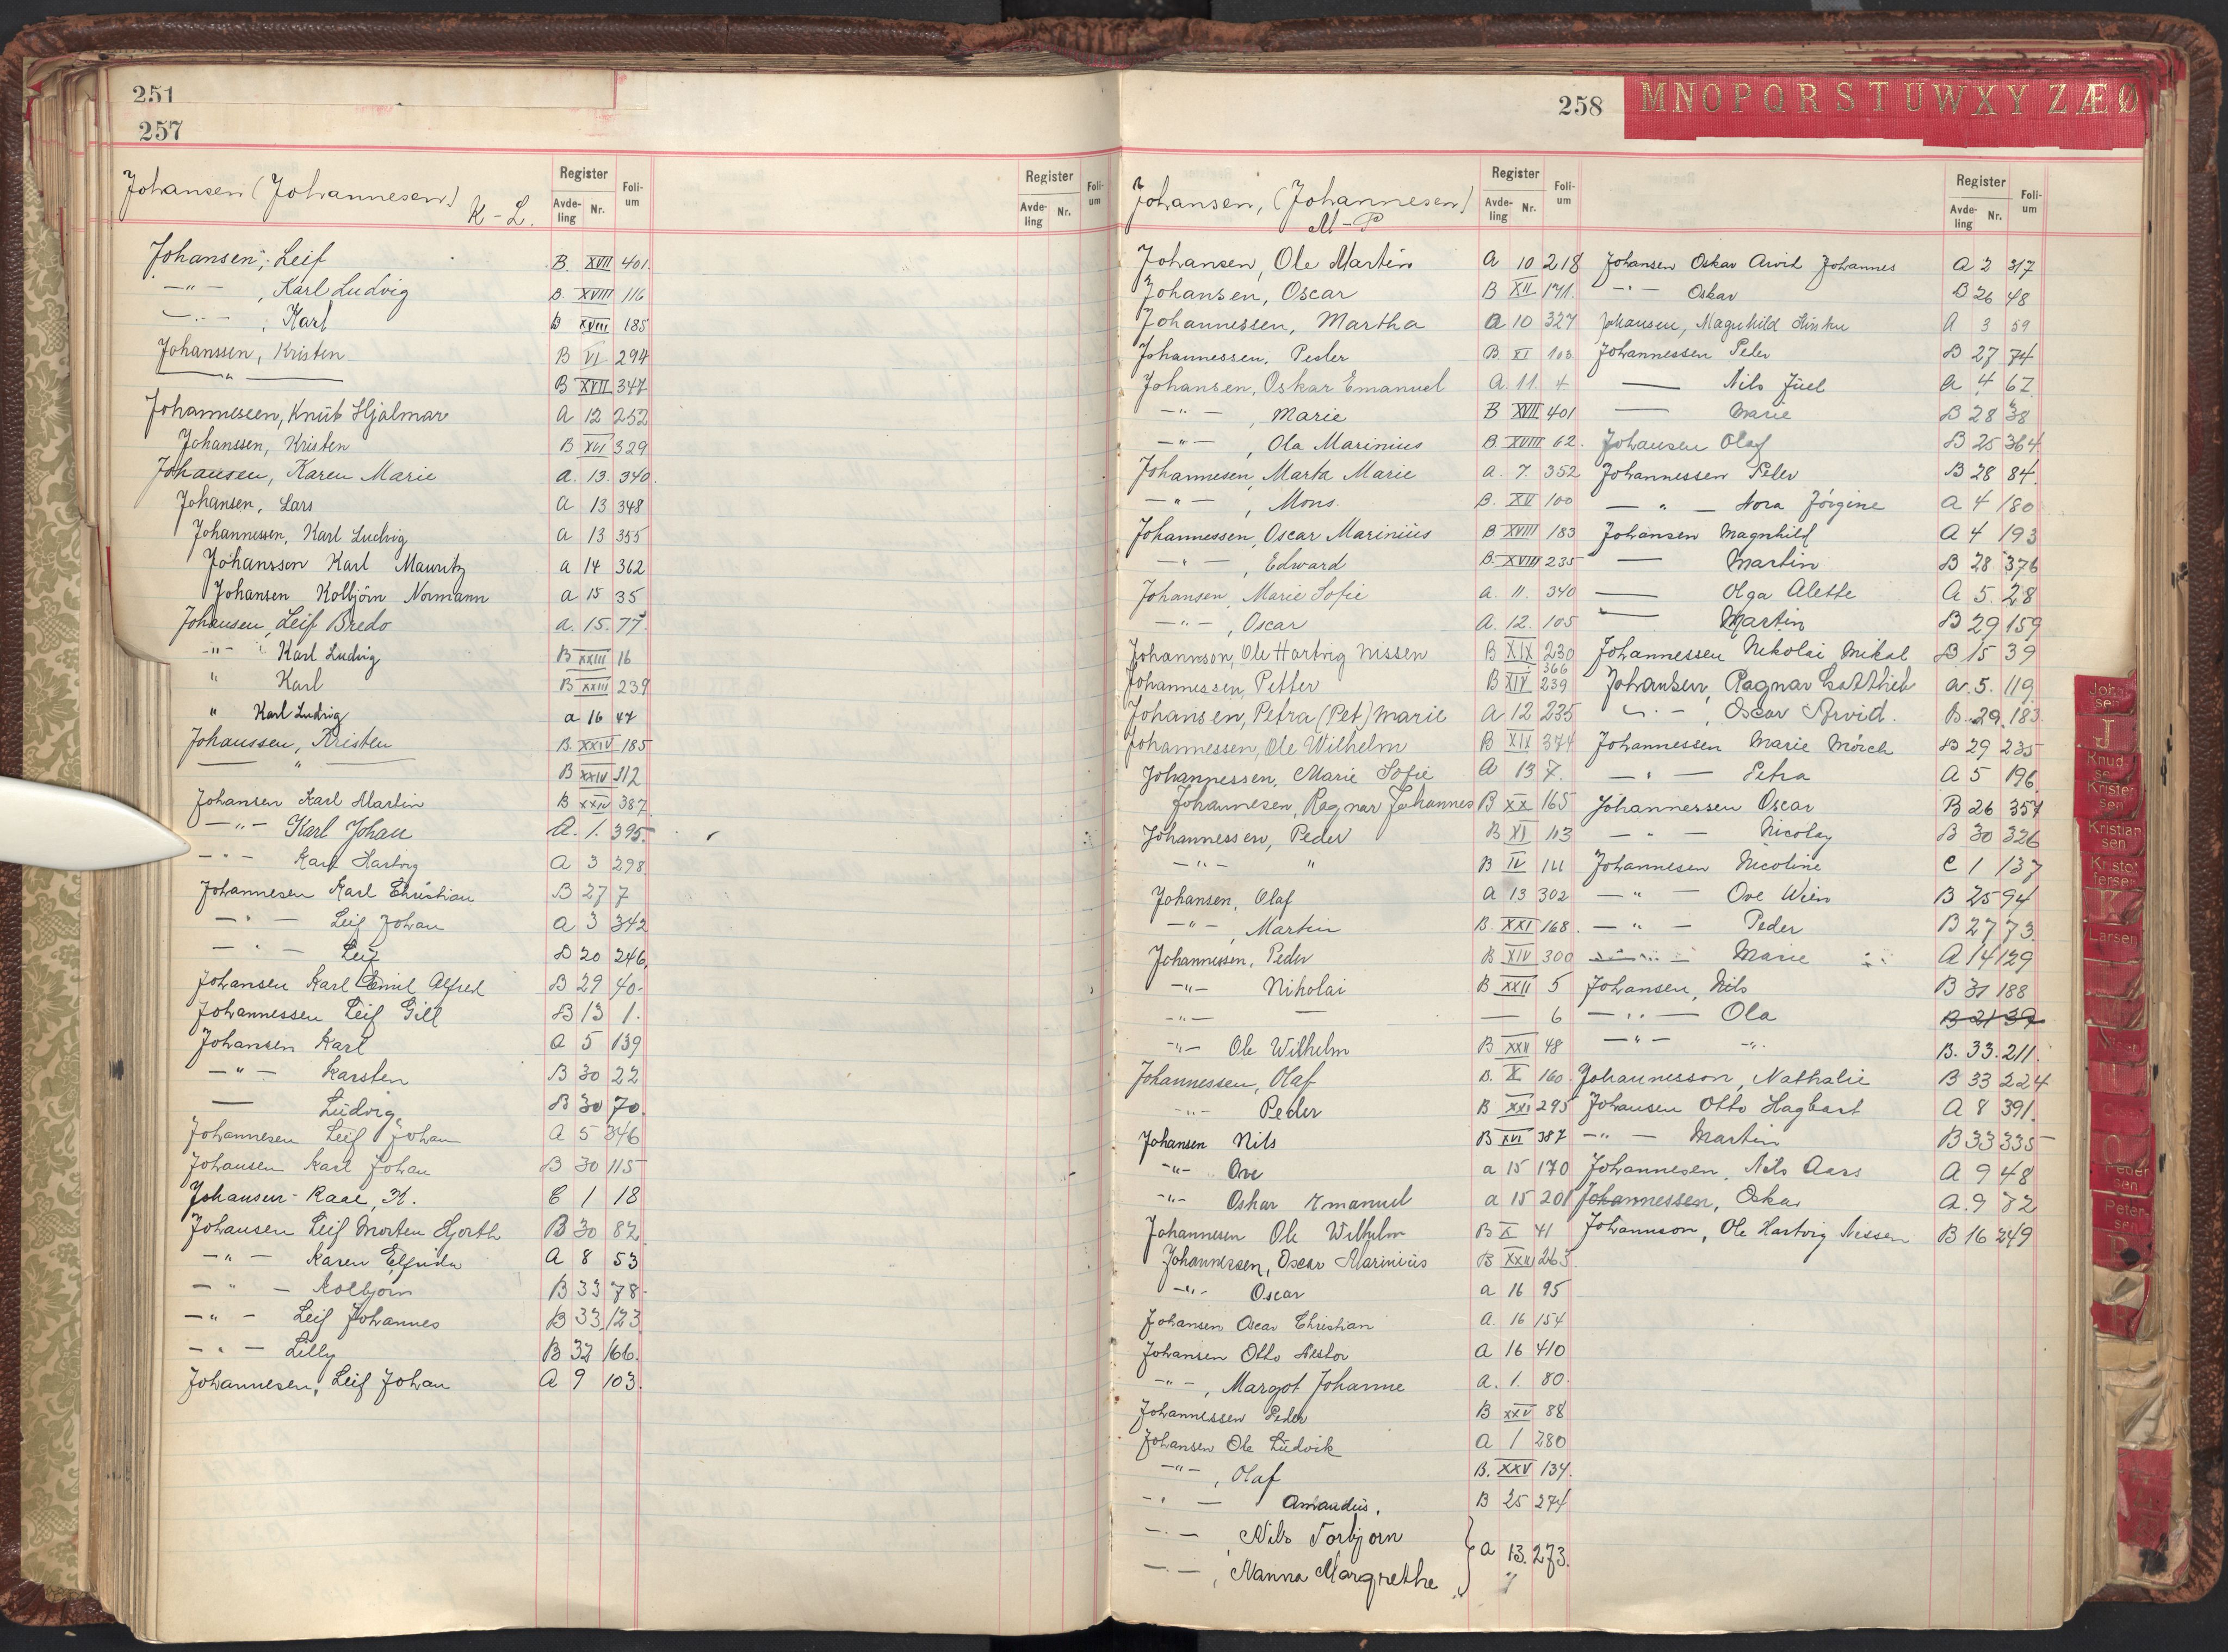 251
257
Johansen (Johannesen) K-L.
Register
Avdeling Nr. Folium
Register
Avdeling Nr. Folium
Johansen, Leif B. XVII 401.
-"- , Karl Ludvig B. XVIII 116
-"- , Karl B XVIII 185
Johanssen, Kristen B VI 294
-"- B XVII 347
Johannessen, Knut Hjalmar A 12 252
Johanssen, Kristen B XVI 329
Johansen, Karen Marie a. 13. 340.
Johansen, Lars a 13 348
Johannessen, Karl Ludvig a 13 355
Johansson Karl Mauritz a 14 362
Johansen Kolbjörn Normann a 15 35
Johansen, Leif Bredo a. 15. 77.
-"- Karl Ludvig B XXIII 16
" Karl B XXIII 239
" Karl Ludvig a 16 47
Johanssen, Kristen B. XXIV 185
-"- B XXIV 312
Johansen Karl Martin B XXIV 387
-"- Karl Johan A. 1. 395.
-"- Karl Hartvig A 3 298
Johannesen Karl Christian B 27 7
-"- Leif Johan A 3 342
-"- Leif B 20 246.
Johansen Karl Emil Alfred B 29 40.
Johannessen Leif Gill B 13 1.
Johansen Karl A 5 139
-"- Karsten B 30 22
— Ludvig B 30 70.
Johannesen Leif Johan A 5 346
Johansen Karl Johan B 30 115
Johansen-Raae, K. C 1 18
Johansen Leif Morten Hjorth B 30 82
-"- Karen Elfrida A 8 53
-"- Kolbjørn B 33 78.
-"- Leif Johannes B 33 123
-"- Lilly B 32 166.
Johannesen, Leif Johan A 9 103.
258
M N O P Q R S T U W X Y Z Æ Ø
Johansen, (Johannesen) M-P
Register
Avdeling Nr. Folium
Register
Avdeling Nr. Folium
Johansen, Ole Martin A 10 218
Johansen, Oscar B XII 171.
Johannessen, Martha A 10 327
Johannessen, Peder B. XI 103
Johansen, Oskar Emanuel A. 11. 4
-"- , Marie B XVII 401
-"- , Ola Marinius B XVIII 62.
Johannesen, Marta Marie a. 7. 352
-"- , Mons. B. XV 100
Johannessen, Oscar Marinius B XVIII 183
-"- , Edward B. XVIII 235
Johansen, Marie Sofie a. 11. 340
-"- , Oscar A. 12. 105
Johannson, Ole Hartvig Nissen B XIX 230
366
Johannessen, Petter B XIV 239
Johansen, Petra (Pet) Marie A 12 235
Johannessen, Ole Wilhelm B XIX 374
Johannessen, Marie Sofie A 13 7.
Johannesen, Ragnar Johannes B XX 165
Johannessen, Peder B XI 113
-"- " B IV 111
Johansen, Olaf a 13 302
-"- , Martin B. XXI 168.
Johannessen, Peder B XIV 300
-"- Nikolai B XXII 5
-"- — — 6
-"- Ole Wilhelm B XXII 48
Johannessen, Olaf B. X 160.
-"- Peder B XXI 295
Johansen Nils B XVI 387
-"- Ove a 15 170
-"- Oskar Emanuel a 15 201
Johannesen Ole Wilhelm B X 41
Johannessen, Oscar Marinius B XXII 263
-"- Oscar a 16 95
Johansen Oscar Christian A. 16 154
Johansen Otto Nestor A 16 410
-"- , Margot Johanne A. 1. 80.
Johannessen Peder B XXV 88
Johansen Ole Ludvik A 1 280
-"- , Olaf B. XXV 134.
-"- Amandus. B 25 274
-"- , Nils Torbjørn
-"- , Nanna Margrethe } a 13. 273.
Johansen Oskar Arvil Johannes A 2 317
-"- Oskar B 26 48
Johansen, Magnhild A 3 59
Johannessen Peder B 27 74
— Nils Juel A 4 67
— Marie B 28 38
Johansen Olaf B 25 364
Johannessen Peder B 28 84.
-"- Nora Jörgine A 4 180
Johansen Magnhild A 4 193
— Martin B 28 376
— Olga Alette A 5. 28
— Martin B 29 159
Johannessen Nikolai Mikal B 15 39
Johansen, Ragnar Gotthieb a. 5. 119.
-"- , Oscar Arvid. B. 29. 183.
Johannessen Marie Mörch B 29 235
-"- Petra A 5 196
Johannessen Oscar B 26 357
-"- Nicolay B 30 326
Johannesen Nicoline C 1 137
-"- Ove Wien B 25 94
-"- Peder B 27 73.
-"- Marie A 14 129
Johansen, Nils B 31 188
-"- Ola B 21 39
-"- -"- B. 33. 211.
Johannesson, Nathalie B 33 224
Johansen Otto Hagbart A 8 391.
-"- Martin B 33 335
Johannesen, Nils Aars A 9 48
Johannessen, Oskar A. 9 72
Johannson, Ole Hartvig Nissen B 16 249
Johansen
J
Knudsen
Kristensen
Kristiansen
Kristoffersen
K
Larsen
O
Pedersen
Petersen
P
R